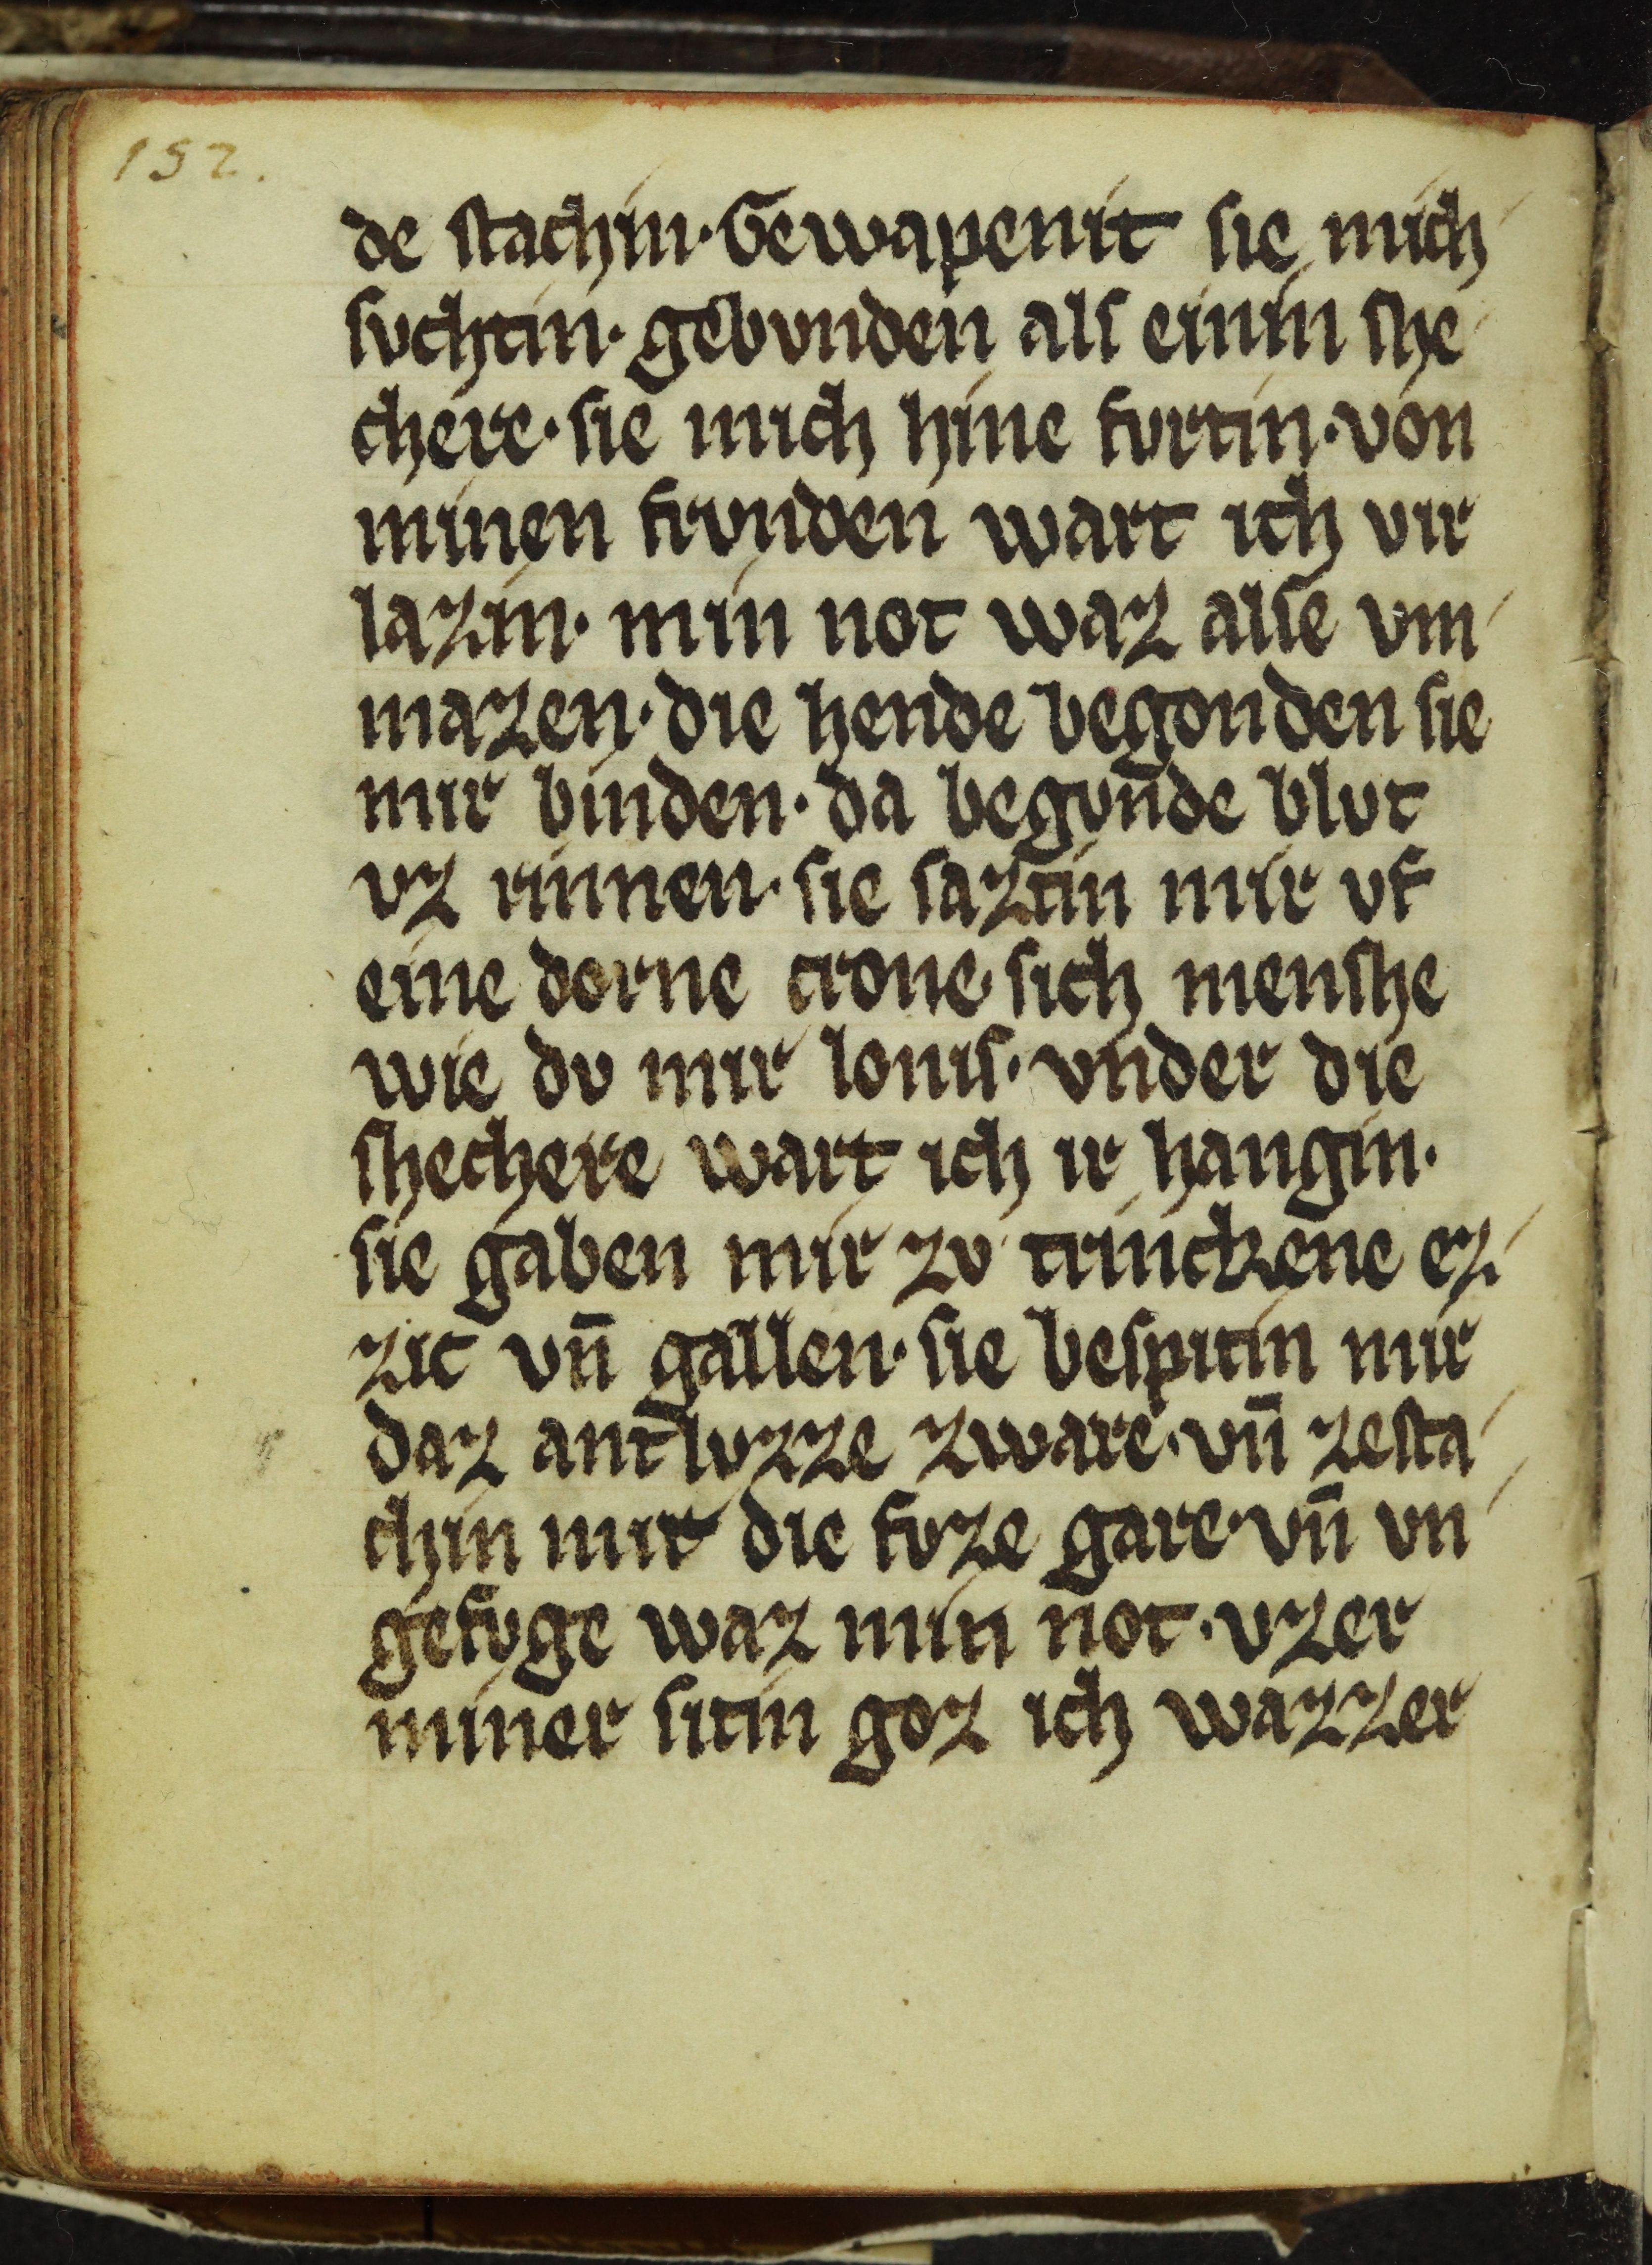 152.
de stachin. Gewapenit sie mich
suchtin. gebunden als einin she
chere. sie mich hine furtin. von
minen frunden wart ich vir
lazin. min not waz alse vm
mazen. die hende begonden sie
mir binden. da begunde blut
vz rinnen. sie saztin mir vf
eine dorne crone. sich menshe
wie du mir lonis. vnder die
shechere wart ich ir hangin.
sie gaben mir zv trinckene ez
zic vn̄ gallen. sie bespitin mir
daz antluzze zware. vn̄ zesta
chin mir die fvze gare. vn̄ vn
gefvge waz min not. vzer
miner sitin goz ich wazzer